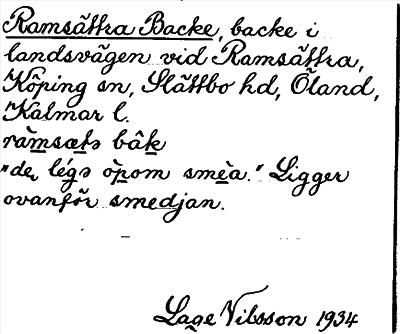 Ramsättra Backe, backe i
landsvägen vid Ramsättra,
Köping sn, Slättbo hd, Öland,
Kalmar l.
ràmsæts bâk
"de légs òpom smèa." Ligger
ovanför smedjan.
Lage Nilsson 1934